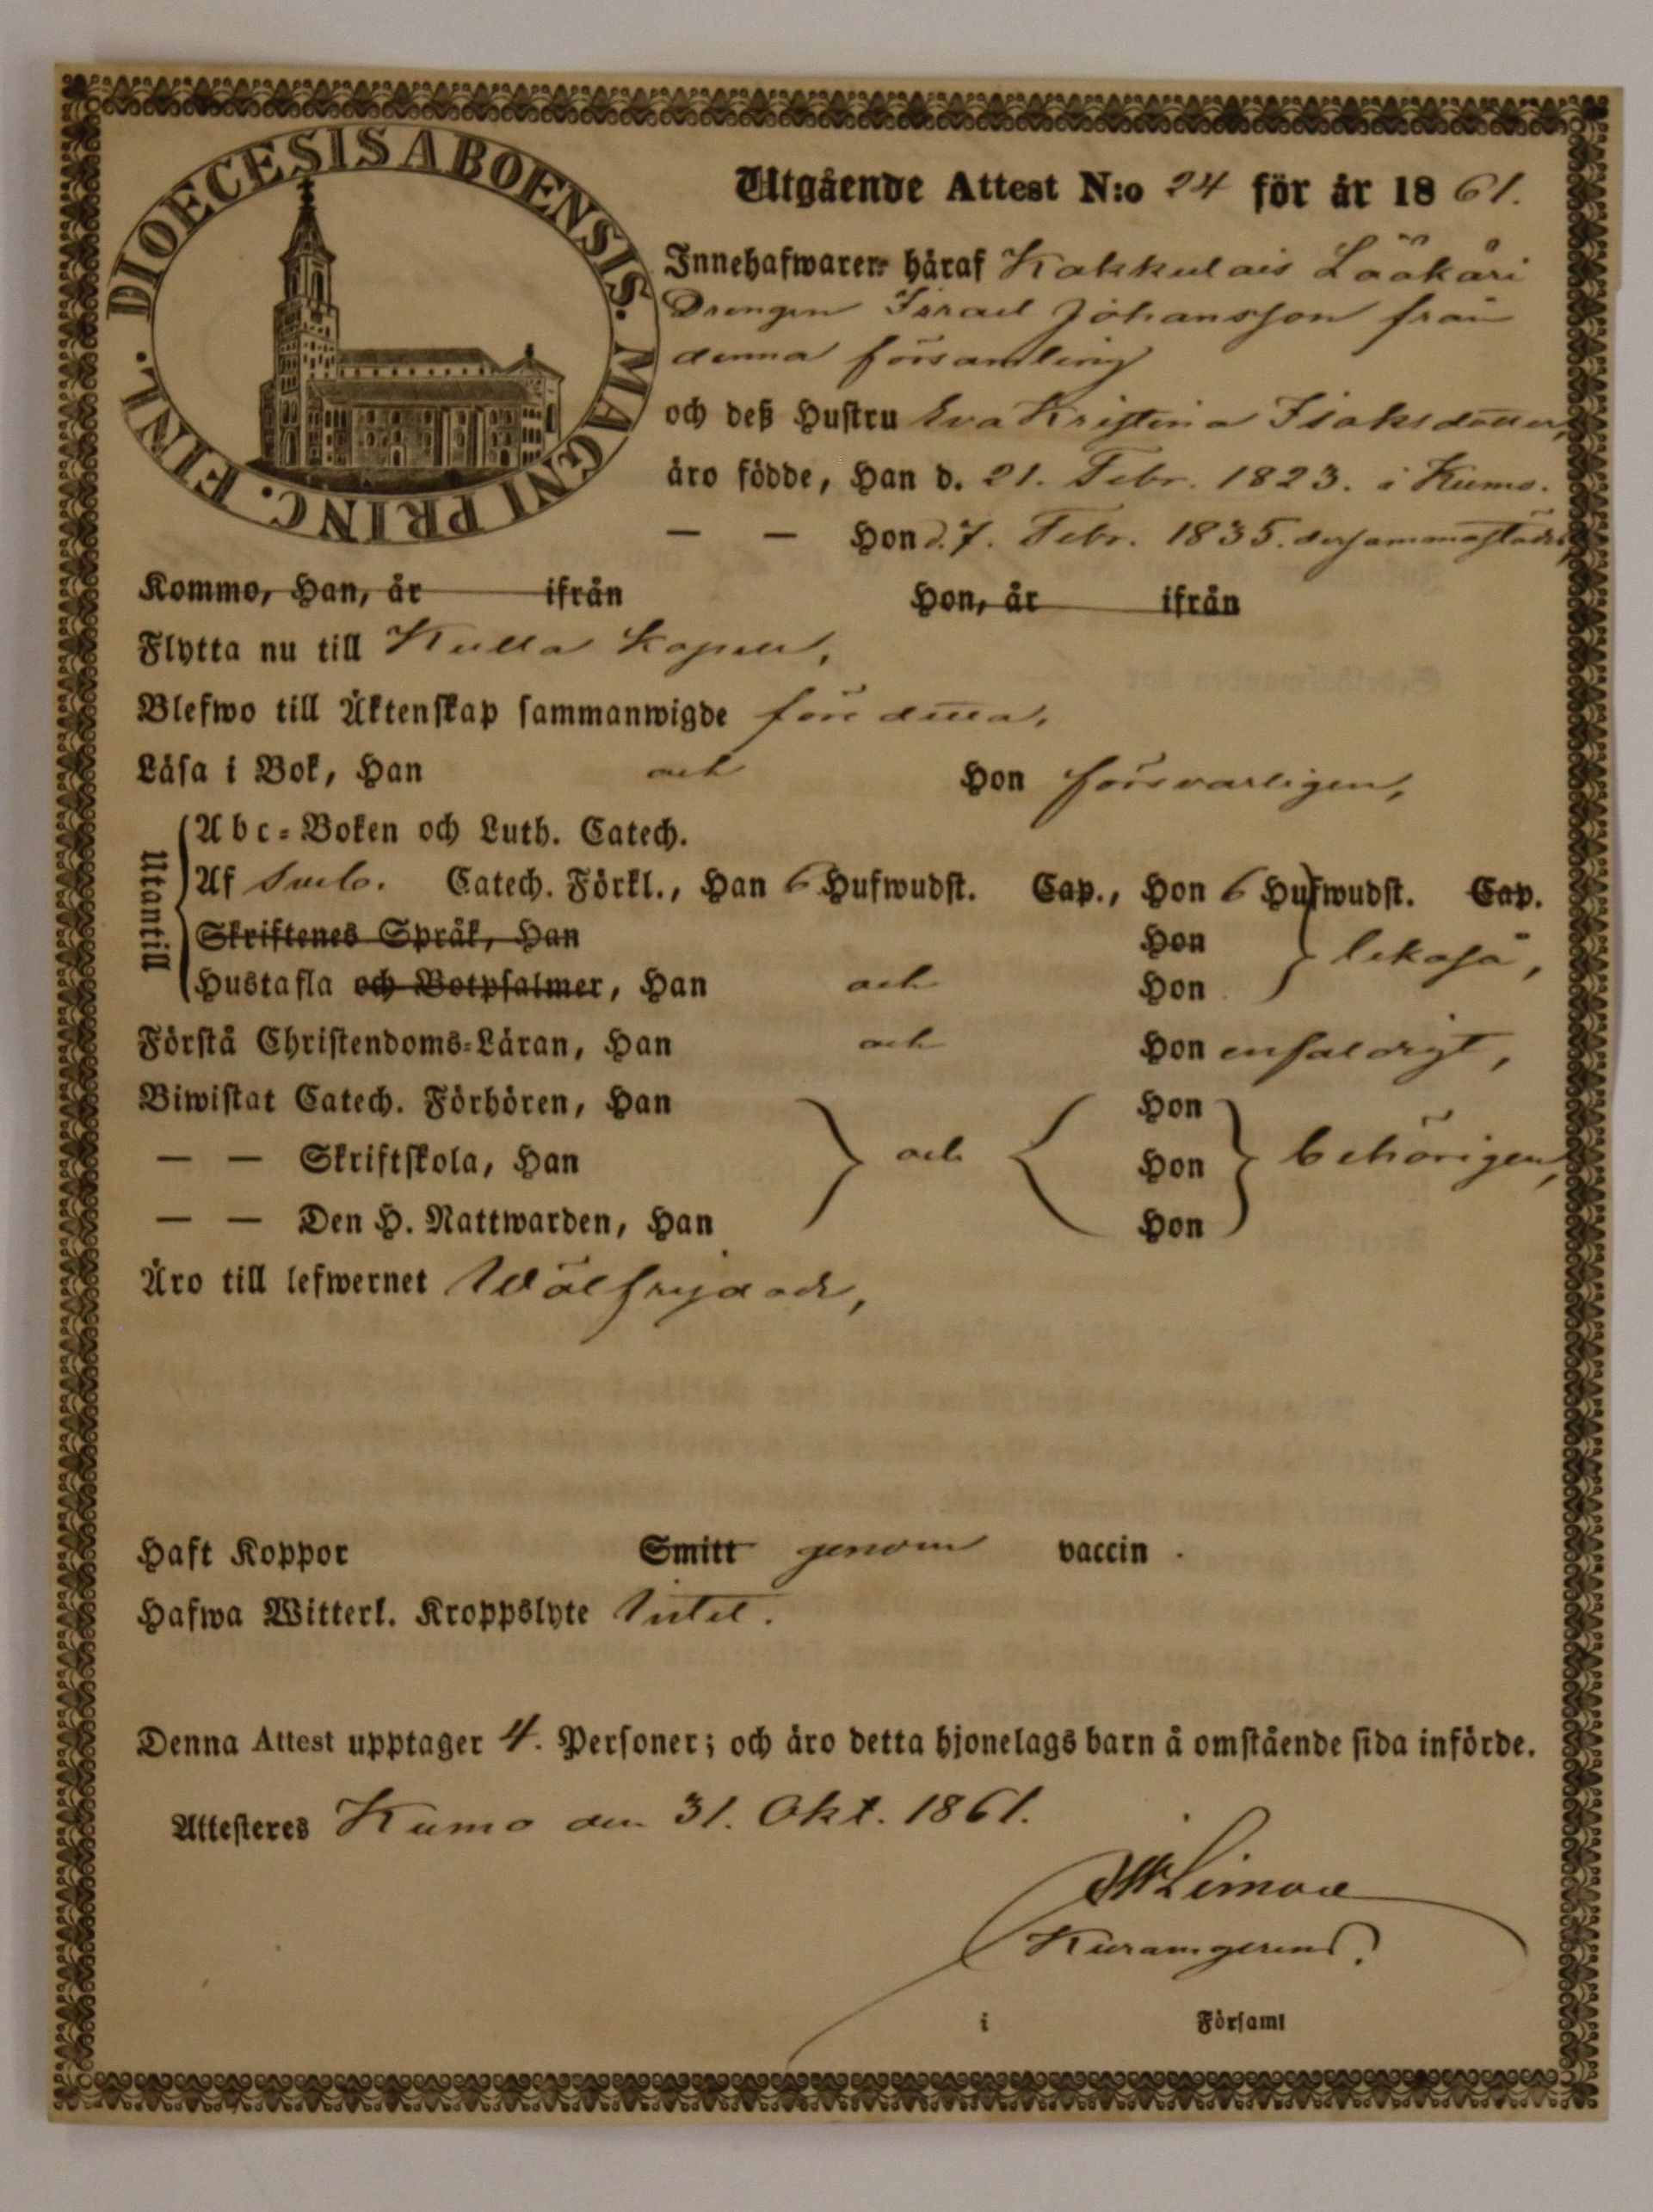 DIOECESIS ABOENSIS. MAGNI PRINC. FINL.
Utgående Attest N:o 24 för år 1861.
Innehafwaren häraf Kakkulais Lääkäri
Drengen Israel Johansson från
denna församling
och deß Hustru Eva Kristina Isaksdotter,
äro födde, Han d. 21. Febr. 1823. i Kumo.
— — Hon d. 7. Febr. 1835. dersammastädes,
Kommo, Han, år ifrån Hon, år ifrån
Flytta nu till Kulla Kapell,
Blefwo till Äktenskap sammanwigde före detta,
Läsa i Bok, Han och Hon försvarligen,
Utantill
Abc-Boken och Luth. Catech.
Af Sveb. Catech. Förkl., Han 6 Hufwudst. Cap., Hon 6 Hufwudst. Cap.
Skriftenes Språk, Han Hon likaså,
Hustafla och Botpsalmer, Han och Hon
Förstå Christendoms-Läran, Han och Hon enfaldigt,
Biwistat Catech. Förhören, Han Hon
— — Skriftskola, Han och Hon behörigen,
— — Den H. Nattwarden, Han Hon
Äro till lefwernet Wälfrejdade,
Haft Koppor Smitt genom vaccin.
Hafwa Witterl. Kroppslyte Intet.
Denna Attest upptager 4. Personer; och äro detta hjonelags barn å omstående sida införde.
Attesteres Kumo den 31. Okt. 1861.
Limon
Kuramgerens.
i Förſaml